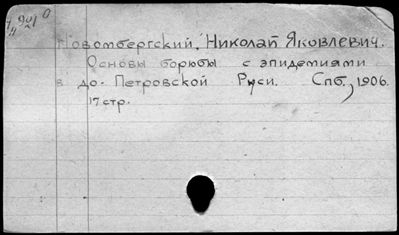 Новомбергский, Николай Яковлевич.
Основы борьбы с эпидемиями
в до-Петровской Руси. Спб., 1906.
17 стр.